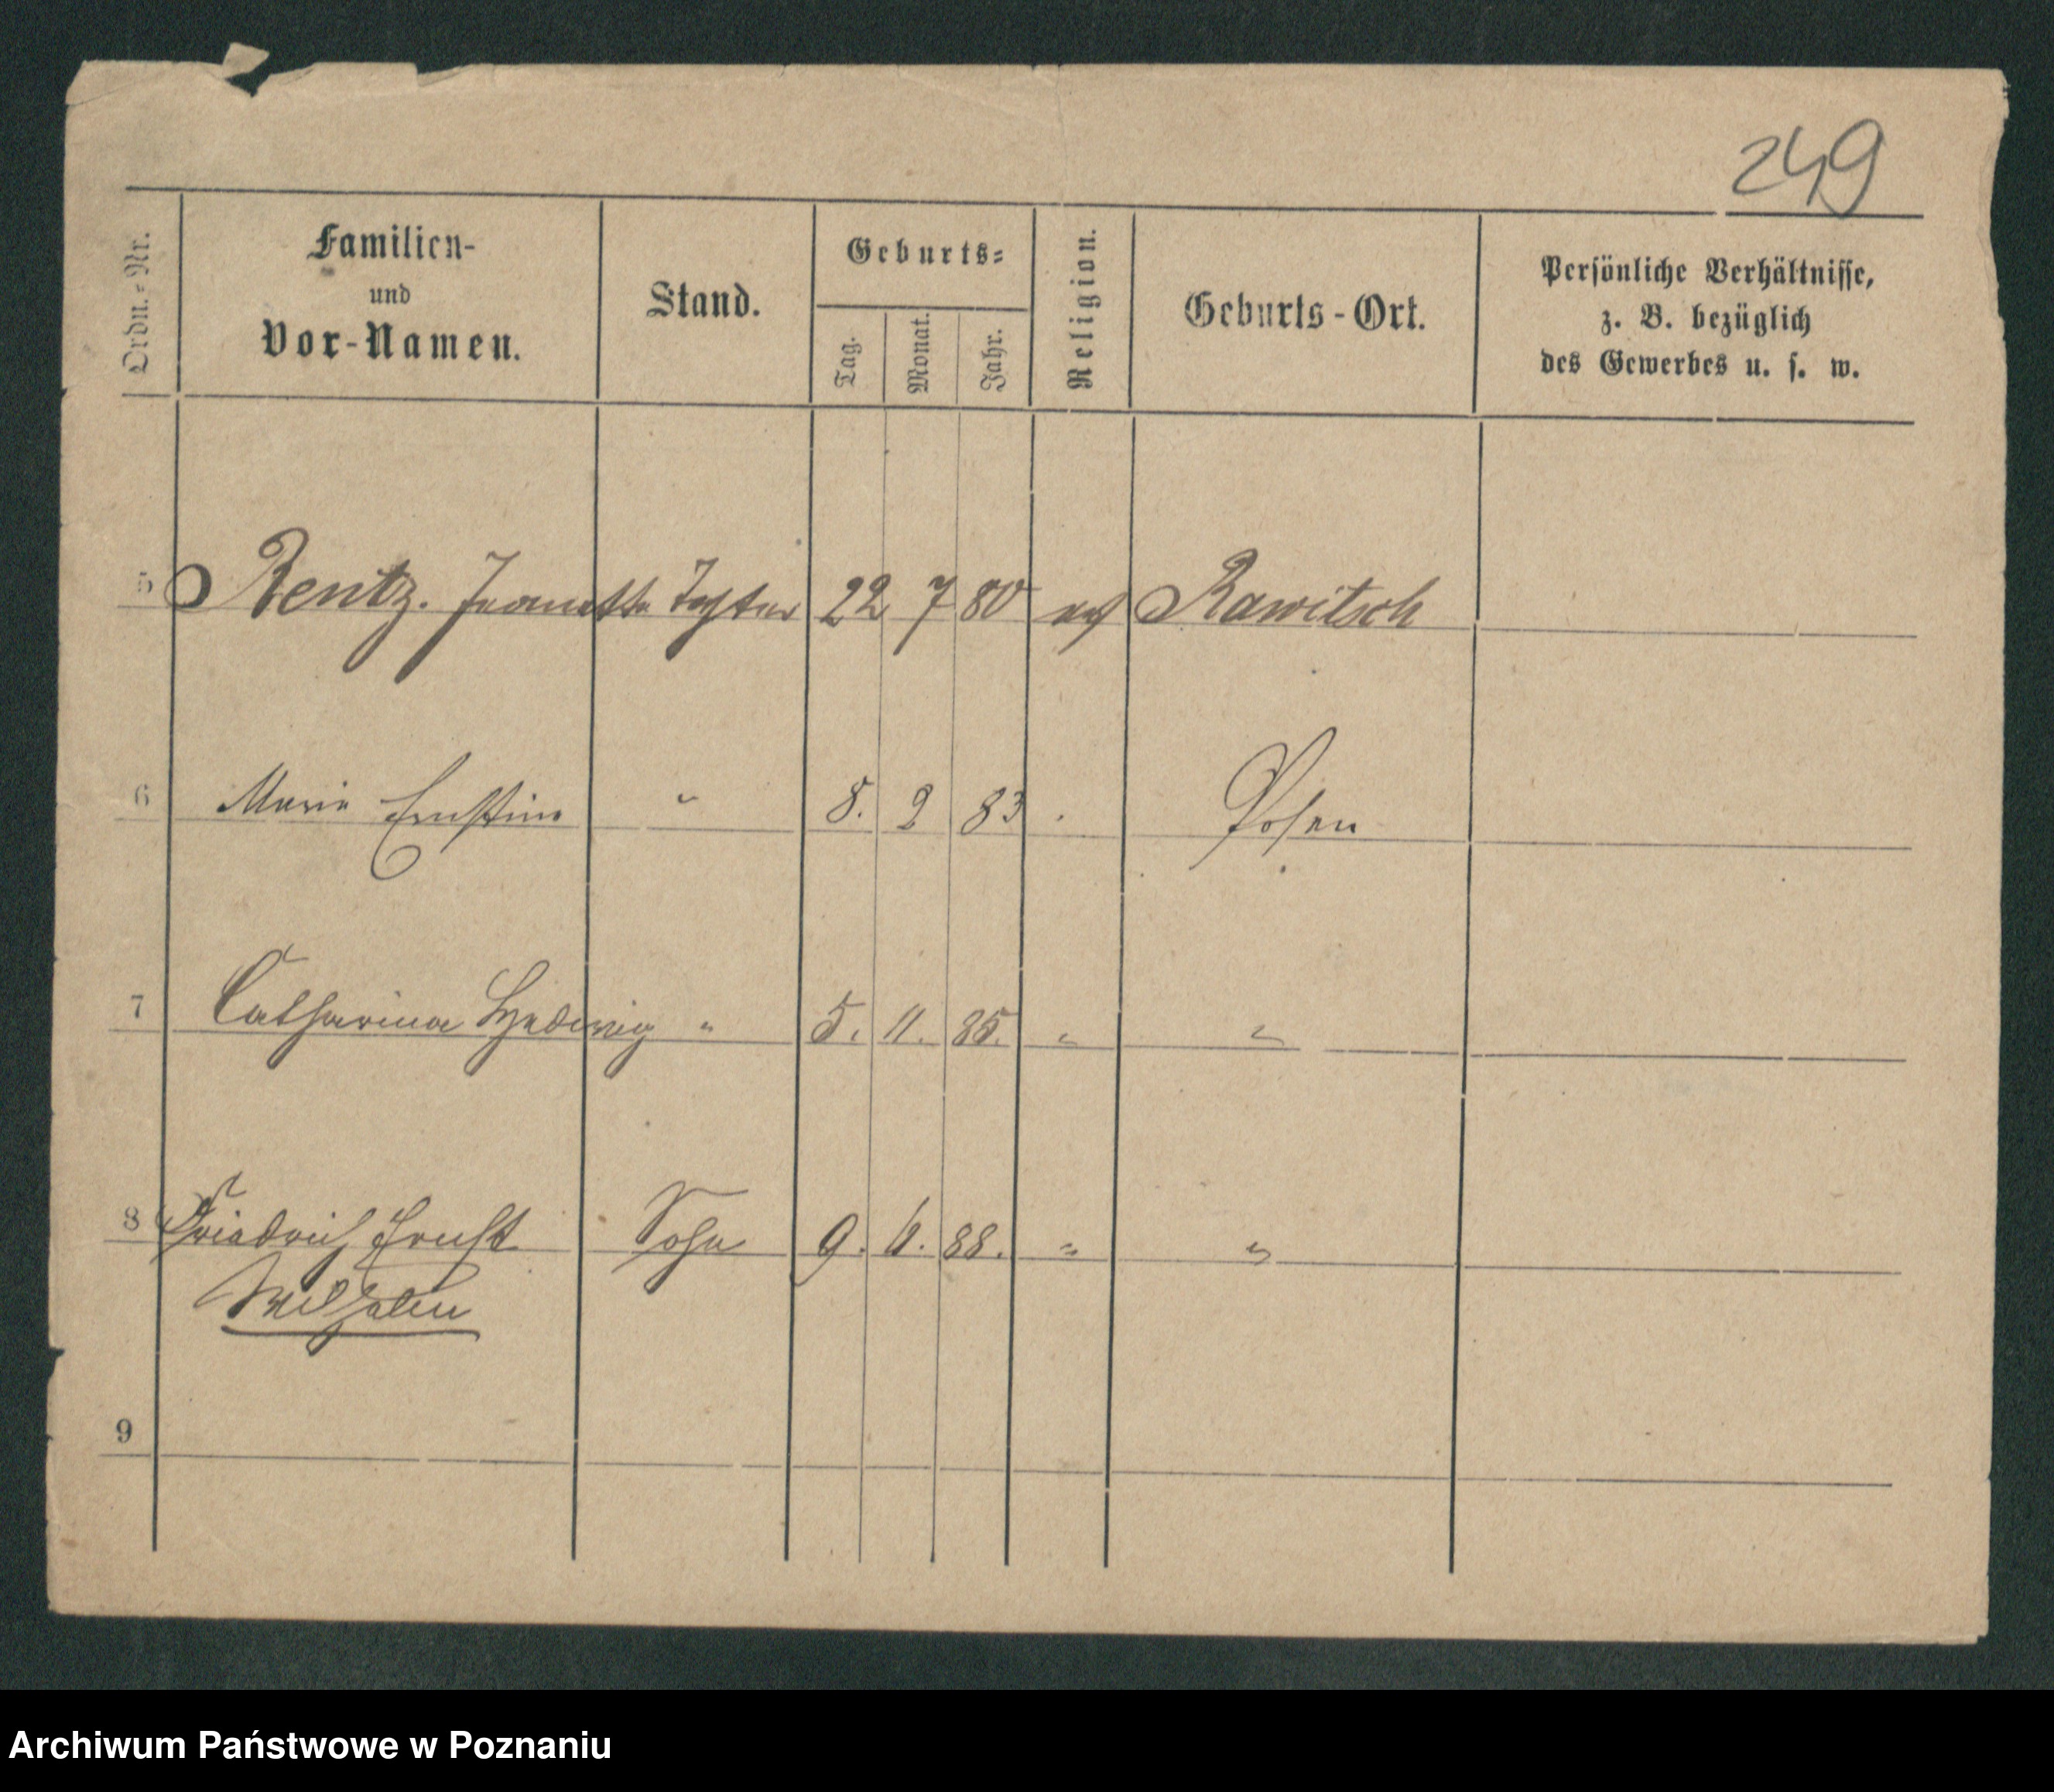 249
Ordn.-Nr.
Familien-
und
Vor-Namen.
Stand.
Geburts-
Tag.
Monat.
Jahr.
Religion.
Geburts-Ort.
Persönliche Verhältnisse,
z. B. bezüglich
des Gewerbes u. s. w.
5 Rentz. Jeanette Tochter 22 7 80 Rawitsch
6 Marie Ernstine " 8. 2 83 Posen
7 Catharina Hedwig " 5. 11. 85. " "
8 Friedrich Ernst Sohn 9. 88. " "
Wilhelm
9
Archiwum Państwowe w Poznaniu